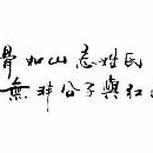 骨如山忘姓氏
無非公子與紅